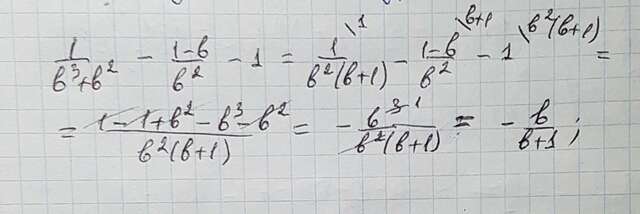 1/(b³+b²) - (1-b)/b² - 1 = 1/(b²(b+1)) \1 - (1-b)/b² \b+1 - 1 \b²(b+1) =
= (1-1+b²-b³-b²)/(b²(b+1)) = - b³/(b²(b+1)) = - b/(b+1);